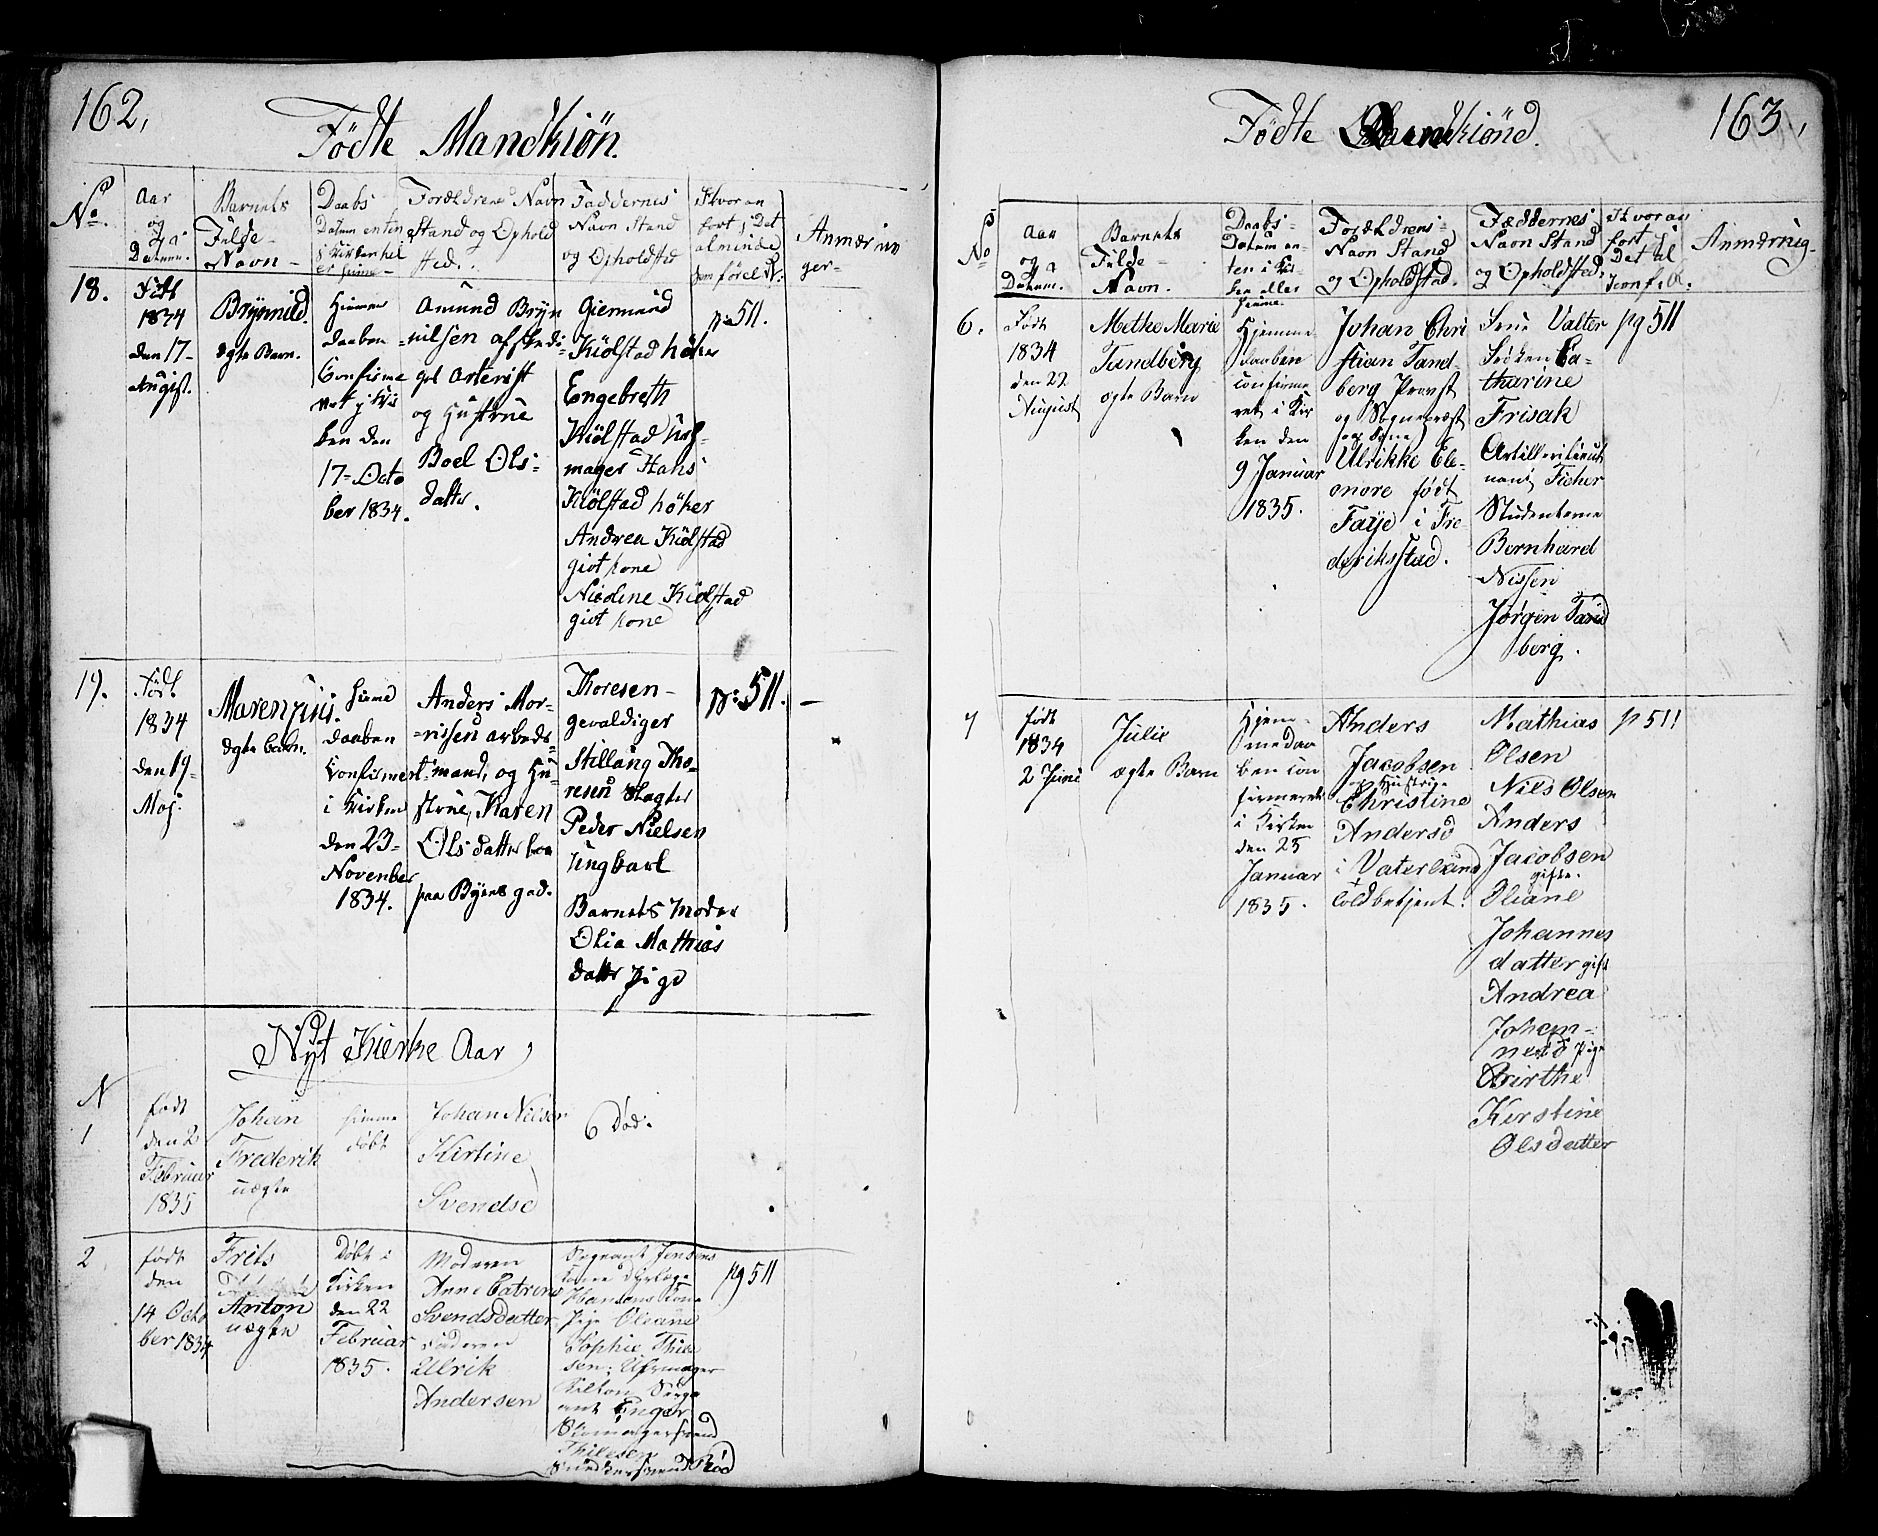 162,
Fødte Mandkiøn.
No.
Aar
og
Datum.
Barnets
Fulde
Navn
Daabs
Datum enten
i Kirken hel
er hieme
Forældrene Navn
Stand og Ophold
sted.
Faddernes
Navn Stand
og Opholdsted
Hvoran
ført i Det
alminde
Anmærknin
ger
18.
Født
1834
den 17
August.
Brynnild.
ægte Barn.
Hieme
daaben
Confirme
ret i Kir
ken den
17 Octo
ber 1834.
Amund Bryn
nilsen afskedi
get Arterist
og Hustrue
Boel Ols
datter.
Giermund
Kiölstad höker
Engebreth
Kiölstad
mager Hans
Kiölstad höker
Andrea Kiölstad
givt kone
Nicoline Kiölstad
givt kone
p: 511.
19.
Født
1834
den 19
Maj.
Maren
ægte barn.
Hieme
daaben
Confirmert
i Kirken
den 23
November
1834.
Anders Mor
rissen arbeds
mand, og Hu
strue, Karen
Olsdatter boe
paa Byens gad.
Thoresen
gevaldiger
Stillaug Tho
resen Slagter
Peder Nielsen
Ungkarl
Barnets Moder
Olia Mathias
datter Pige
p: 511.
Nyt Kierke Aar
N
1
født
den 2
Februar
1835
Johan
Frederik
uægte
hieme
døbt
Johan Nilsen
Kirtine
Svendsd
Død.
2
født
den
14 Octo
ber 1834
Frits
Anton
uægte
Døbt i
Kirken
den 22
Februar
1835.
Moderen
Anne Catrine
Svendsdatter
Faderen
Ulrik
Andersen
Sergeant Jensens
Kone
Hansens Kone
Pige Oliane
Sophie Thile
sen: Uhrmager
Tilton Serge
ant Enger
Skomagersvend
Thilesen
Snedkersvend Rød
pg 511
163,
Fødte Qvindekiønd.
No
Aar
og
Datum.
Barnets
Fulde
Navn.
Daabs
Datum en
ten i Kir
ken eller
hieme.
Forældrens
Navn Stand
og Opholdstad.
Fæddernes
Navn Stand
og Opholdsted.
Hvoran
ført i
Det al
Anmærknig
6.
Født
1834
den 22
August
Methe Marie
Tandberg
ægte Barn
Hjemme
daaben
confirme
ret i Kir
ken den
9 Januar
1835.
Johan Chri
stian Tand
berg Provst
og Sognepræst
og Kone
Ulrikke Ele
onore født
Faye i Fre
deriksstad.
Frue Valter
Frøken Ca
thurine
Frisak
Artillerilieut
nant Ficher
Studenterne
Bernhard
Nissen
Jørgen Tand
berg.
pg 511
7
født
1834
2 Juni
Julie
ægte Barn
Hjem
medaa
ben con
firmeret
i Kirken
den 25
Januar
1835.
Anders
Jacobsen
og Hustrue
Christine
Andersd
i Vaterland
Toldbetjent.
Mathias
Olsen
Nils Olsen
Anders
Jacobsen
gifte.
Oliane
Johannes
datter gift
Andrea
Johan
nesd pige
Birthe
Kirstine
Olsdatter
p 511